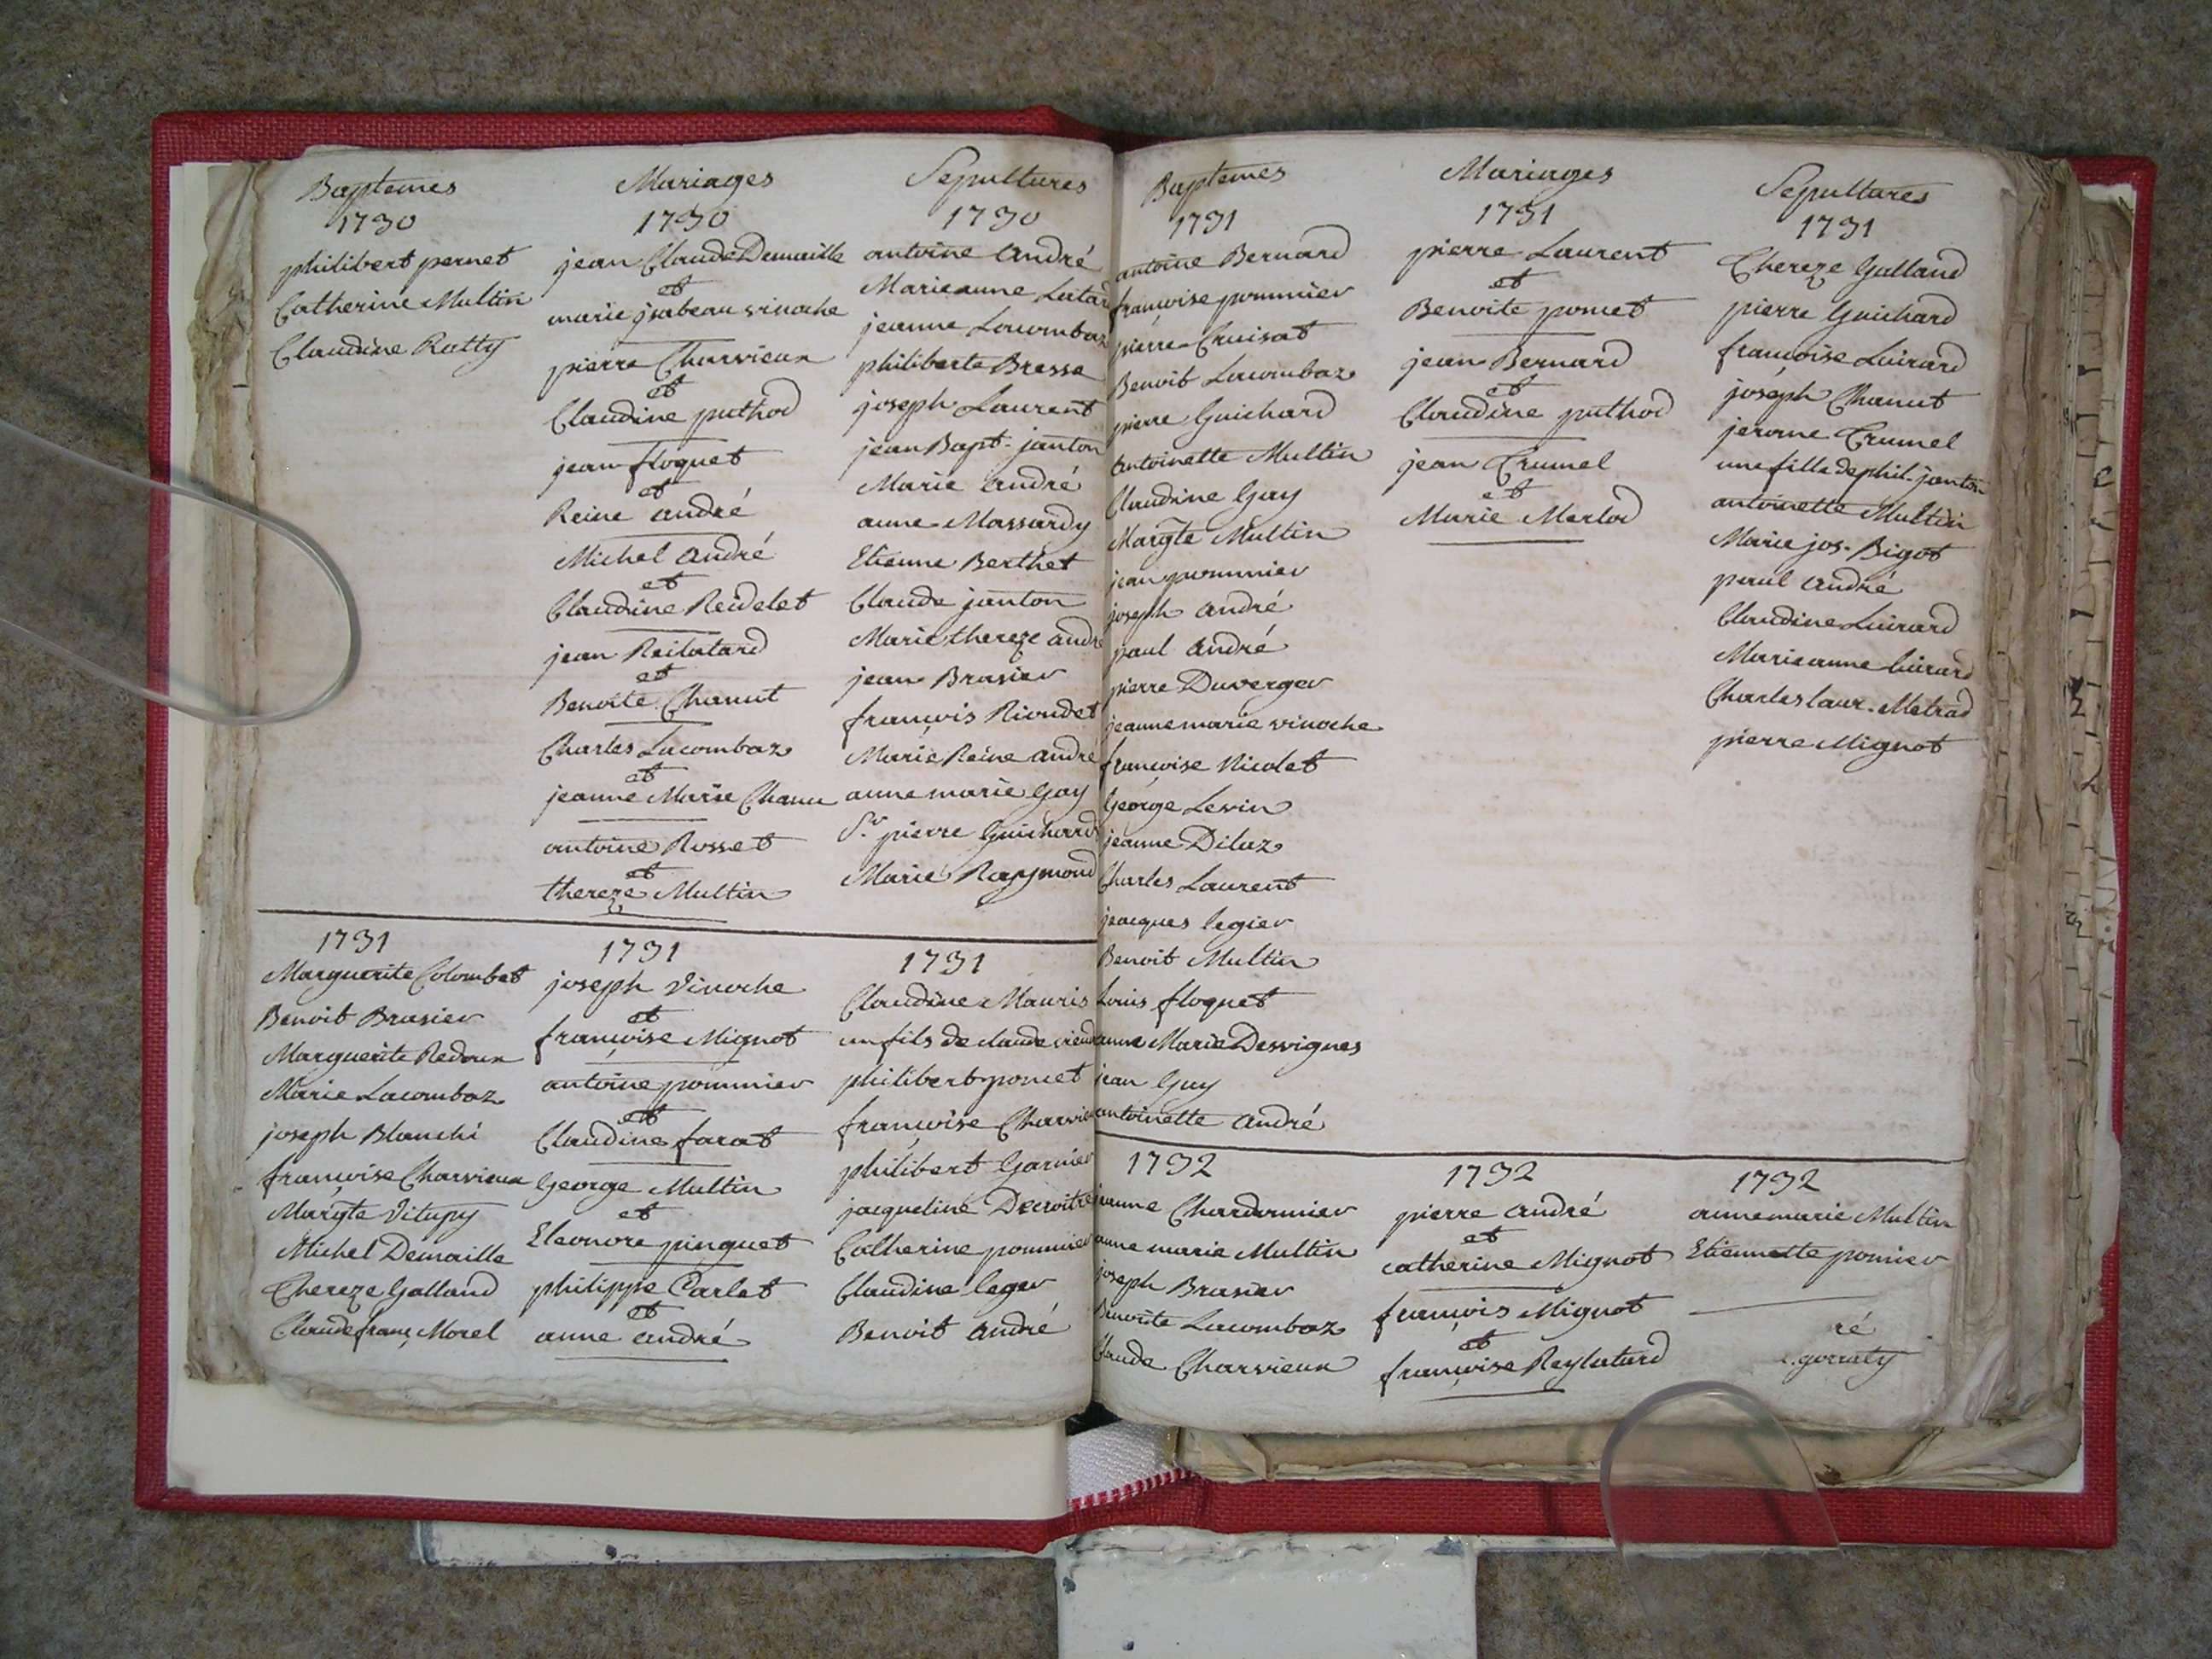 Baptemes
1730
philibert pernet
Catherine Multin
Claudine Ratty
Mariages
1730
jean Claude Demaille
et
marie jsabeau vinoche
pierre Charvieux
et
Claudine puthod
jean floquet
et
Reine andré
Michel andré
et
Claudine Reidelet
jean Reilatard
et
Benoite Chanut
Charles Lacombaz
et
jeanne Marie Chanu
antoine Rosset
et
thereze Multin
Sepultures
1730
antoine andré
Marieanne
jeanne Lacombaz
philiberte Bressa
joseph Laurent
jean Bapt. janton
Marie andré
anne Massardy
Etienne Berthet
Claude janton
Marie thereze andre
jean Brasier
françois Rioudet
Marie Reine andré
anne marie Gay
S.r pierre Guichard
Marie Raymond
1731
Marguerite Colombet
Benoit Brasier
Marguerite Redoux
Marie Lacombaz
joseph Blanchi
françoise Charvieux
Margte Vitupy
Michel Demaille
Thereze Galland
Claude franç. Morel
1731
joseph Vinoche
et
françoise Mignot
antoine pommier
et
Claudine farat
George Multin
et
Eleonore pinguet
philippe Carlet
et
anne andré
1731
Claudine Mauris
un fils de claude
philibert poncet
françoise
philibert Garnier
jacqueline Decroitre
Catherine pommier
Claudine leger
Benoit andré
Baptemes
1731
antoine Bernard
françoise pommier
pierre Cruisat
Benoit Lacombaz
pierre Guichard
Antoinette Multin
Claudine Gay
Margte Multin
jean pommier
joseph andré
paul andré
pierre Duverger
jeanne marie vinoche
françoise Nicolet
George Levin
jeanne Diluz
Charles Laurent
jacques legier
Benoit Multin
Louis floquet
anne Marie Desvignes
jean Guy
antoinette andré
Mariages
1731
pierre Laurent
et
Benoite poncet
jean Bernard
et
Claudine puthod
jean Crumel
et
Marie Merlod
Sepultures
1731
Thereze Galland
pierre Guichard
françoise Luirard
joseph Chanut
jerome Crumel
une fille de phil. janton
antoinette Multin
Marie jos. Bigot
paul andré
Claudine Luirard
Marieanne luirard
Charles laur. Metrad
pierre Mignot
1732
jeanne Chardonnier
anne marie Multin
joseph Brasier
Benoite Lacombaz
Claude Charvieux
1732
pierre andré
et
catherine Mignot
françois Mignot
et
françoise Reylatard
1732
anne marie Multin
Etiennette pomier